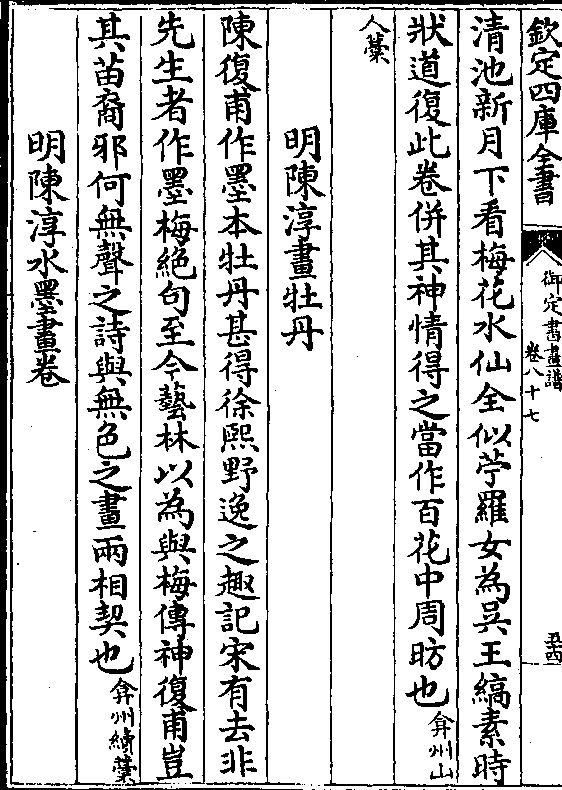 欽定四庫全書
御定書畫譜
卷八十七
五十四
清池新月下看梅花水仙全似苧羅女為吳王縞素時
狀道復此卷併其神情得之當作百花中周昉也弇州山
人藳
明陳淳畫牡丹
陳復甫作墨本牡丹甚得徐熙野逸之趣記宋有去非
先生者作墨梅絕句至今藝林以為與梅傳神復甫豈
其苗裔邪何無聲之詩與無色之畫兩相契也弇州續藳
明陳淳水墨畫卷